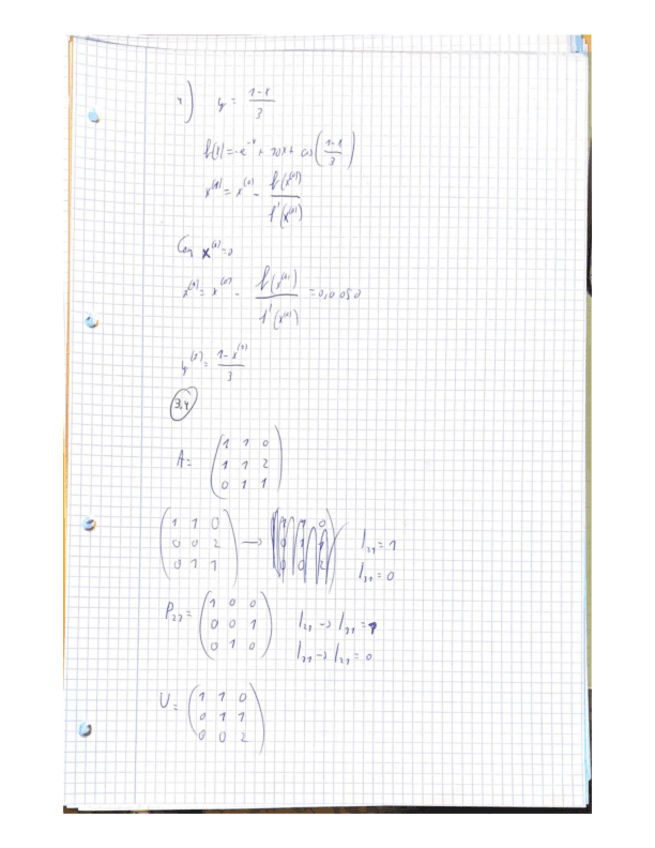 y = (1-x)/3
f(x) = -e^{-x} + 20x + cos((1-x)/3)
x^{(1)} = x^{(0)} - f(x^{(0)})/f'(x^{(0)})
x^{(0)} = 0
x^{(1)} = x^{(0)} - f(x^{(0)})/f'(x^{(0)}) = 0,0050
y^{(1)} = (1-x^{(1)})/3
3.4
A = (1 1 0
1 1 2
0 1 1)
(1 1 0
0 0 2 → l_{21} = 1
0 1 1) l_{31} = 0
P_{23} = (1 0 0
0 0 1 l_{21} → l_{31} = 1
0 1 0) l_{31} → l_{21} = 0
U = (1 1 0
0 1 1
0 0 2)